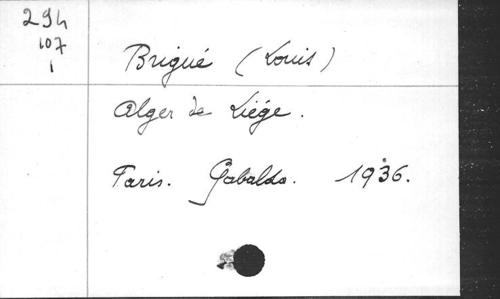 294
107
1
Brigué (Louis)
Alger de Liége.
Paris. Gabalda. 1936.